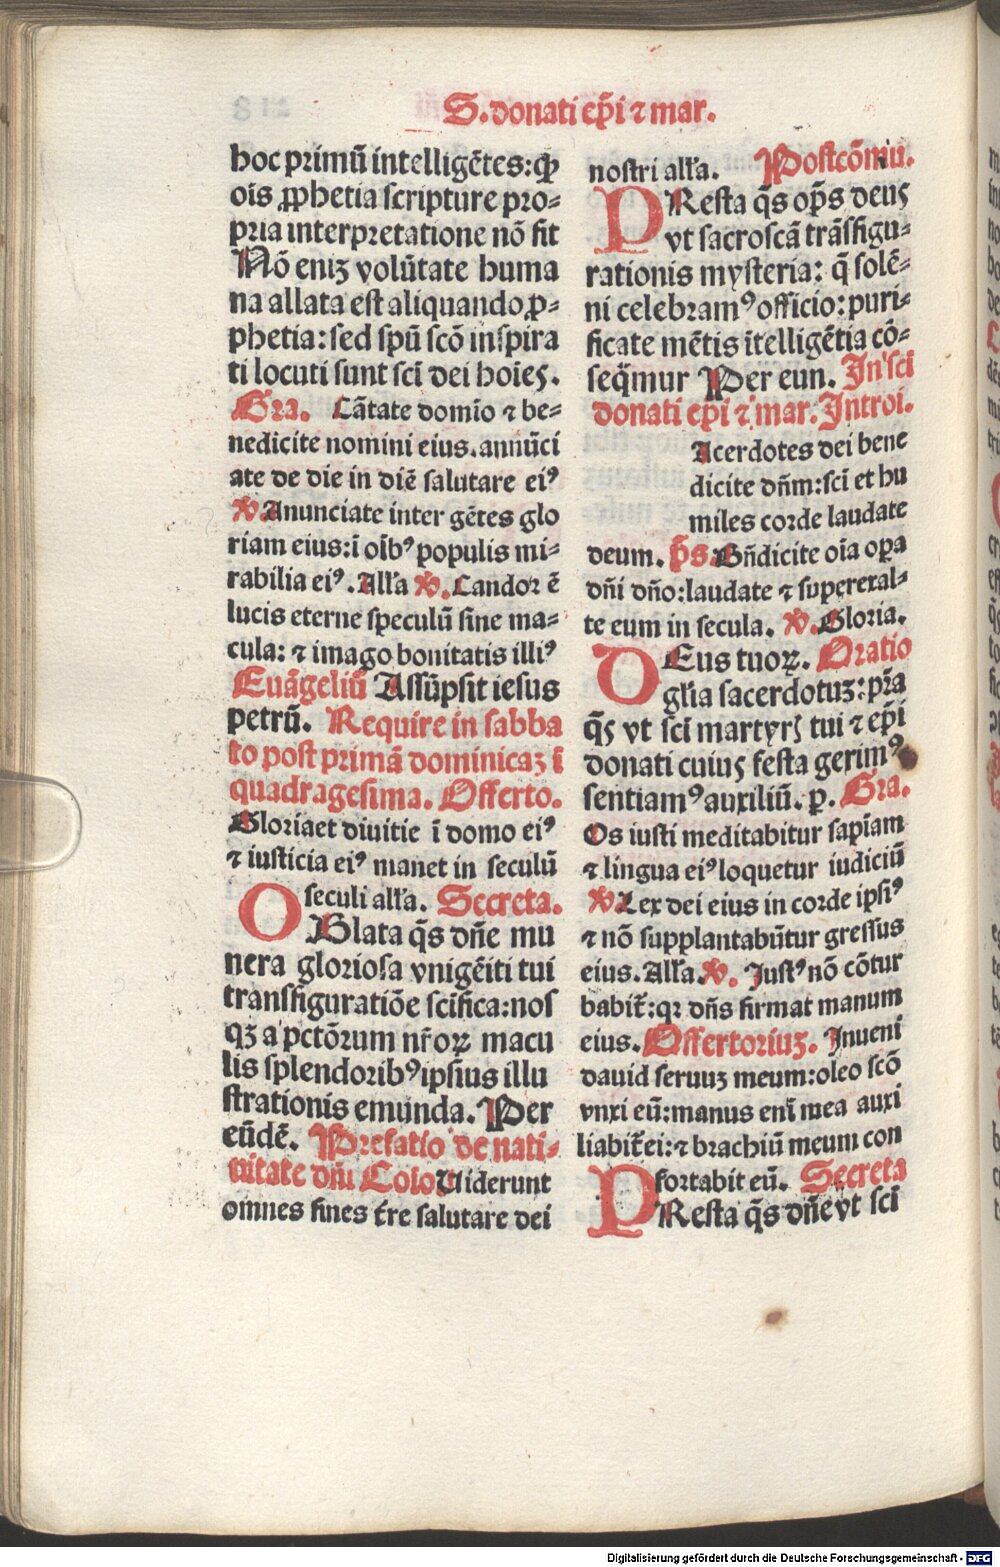 S. donati ep̄i ⁊ mar.
hoc primū intelligētes: ꝙ
oīs ꝓphetia scripture pro-
pria interpretatione nō fit
Nō eniʒ volūtate huma
na allata est aliquando ꝓ-
phetia: sed spū scō inspira
ti locuti sunt scī dei hoīeꝭ.
Gra. Cātate domīo ⁊ be-
nedicite nomini eius. annūci
ate de die in diē salutare eiꝰ
℣. Anunciate inter gētes glo
riam eius: ī oībꝰ populis mi-
rabilia eiꝰ. Alľa ℣. Candoꝛ ē
lucis eterne speculū sine ma-
cula: ⁊ imago bonitatis illiꝰ
Euāgeliū Assūpsit iesus
petrū. Require in sabba
to post primā dominicaʒ ī
quadragesima. Offerto.
Gloria et diuitie ī domo eiꝰ
⁊ iusticia eiꝰ manet in seculū
seculi alľa. Secreta.
OBlata q̄s dn̄e mu
nera gloriosa vnigēiti tui
transfiguratiōe scīfica: nos
qʒ a pctōrum nr̄oꝝ macu
lis splendoribꝰ ipsius illu
strationis emunda. Per
eūdē. Prefatio de nati-
uitate dn̄i Colo Uiderunt
omnes fines t̄re salutare dei
nostri alľa. Postcōmu.
PResta q̄s op̄s deus
vt sacroscā trāsfigu-
rationis mysteria: q̄ solē-
ni celebramꝰ officio: puri-
ficate mētis ītelligētia cō-
seq̄mur Per eun. In sci
donati ep̄i ⁊ mar. Introi.
Sacerdotes dei bene
dicite dn̄m: scī et hu
miles corde laudate
deum. p̄s. Bn̄dicite oīa opa
dn̄i dn̄o: laudate ⁊ superexal-
te eum in secula. ℣. Gloria.
DEus tuoꝝ. Oratio
gľia sacerdotuʒ: pr̄a
q̄ꝭ vt scī martyrꝭ tui ⁊ ep̄i
donati cuiuꝭ festa gerimꝰ
sentiamꝰ auxiliū. p. Gra.
Os iusti meditabitur sapīam
⁊ lingua eiꝰ loquetur iudiciū
℣. Lex dei eius in corde ipsiꝰ
⁊ nō supplantabūtur gressus
eius. Alľa. ℣. Justꝰ nō cōtur
babit̄: qꝛ dn̄s firmat manum
eius. Offertoriuʒ. Inueni
dauid seruuʒ meum: oleo scō
vnxi eū: manus enī mea auxi
liabit̄ ei: ⁊ brachiū meum con
fortabit eū. Secreta
PResta q̄s dn̄e vt scī
Digitalisierung gefördert durch die Deutsche Forschungsgemeinschaft - DFG